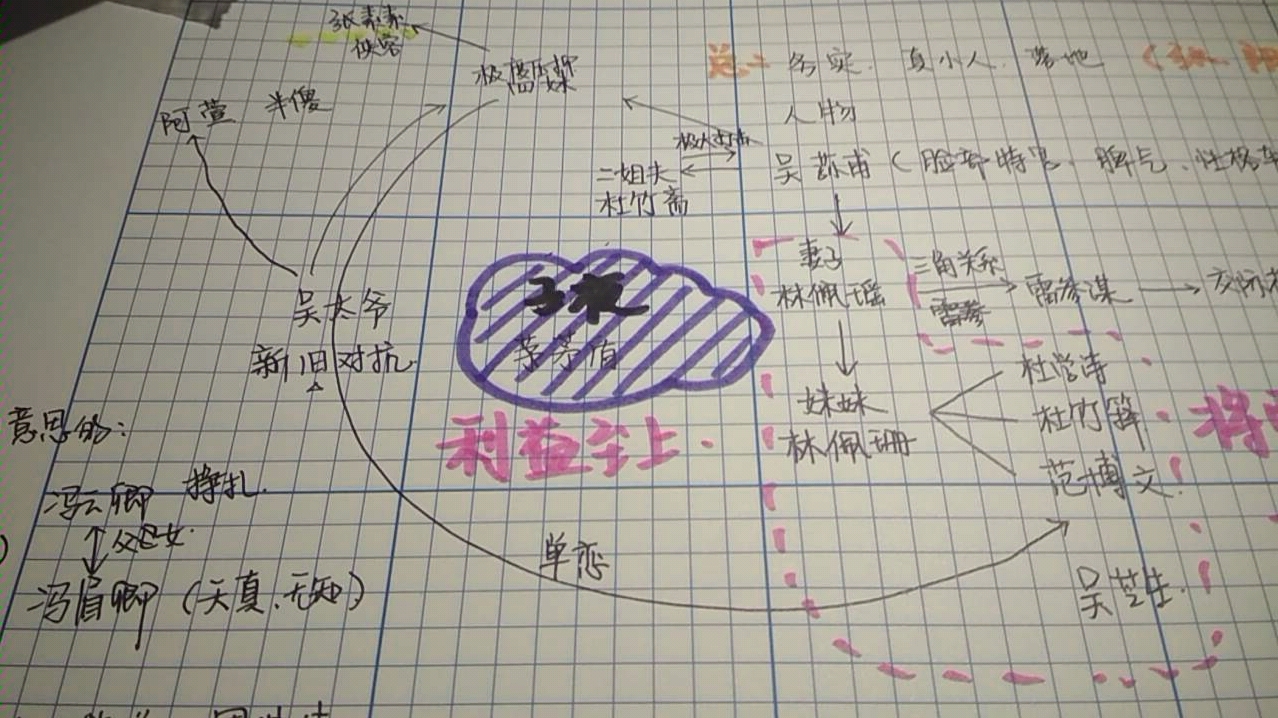 张素素
侠客
阿萱 半傻
总：名实、真小人、落地
人物
吴荪甫（脸部特写、脾气、性格
二姐夫
杜竹斋
妻子
林佩瑶
三角关系
雷参
雷参谋
交际
子夜
茅盾
吴太爷
新旧对抗
利益至上.
妹妹
林佩珊
杜学诗
杜竹
范博文
意思的：
冯云卿 挣扎.
父女
冯眉卿（天真、无知）
单恋
吴芝生.